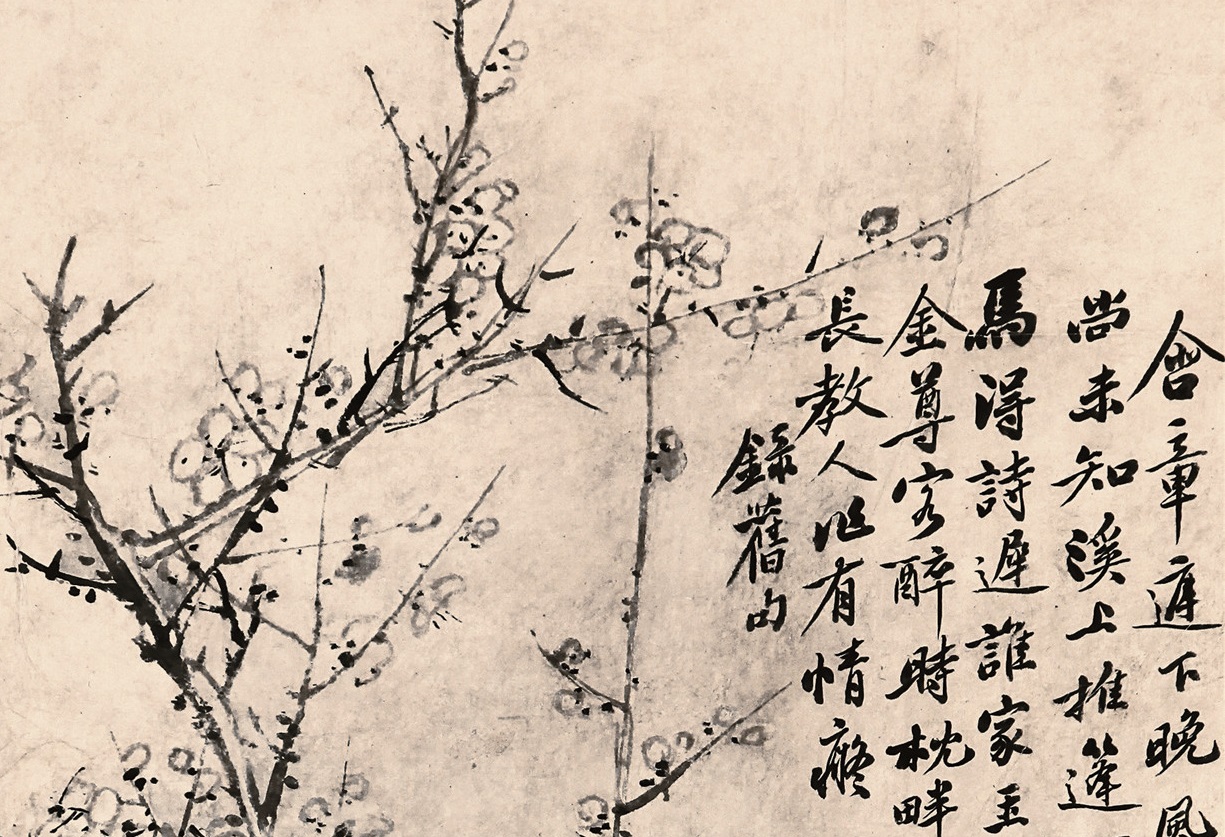 含章下晚風
尚未知溪上推篷
馬得詩遲誰家玉
金尊客醉時枕畔
長教人作有情癡
錄舊句